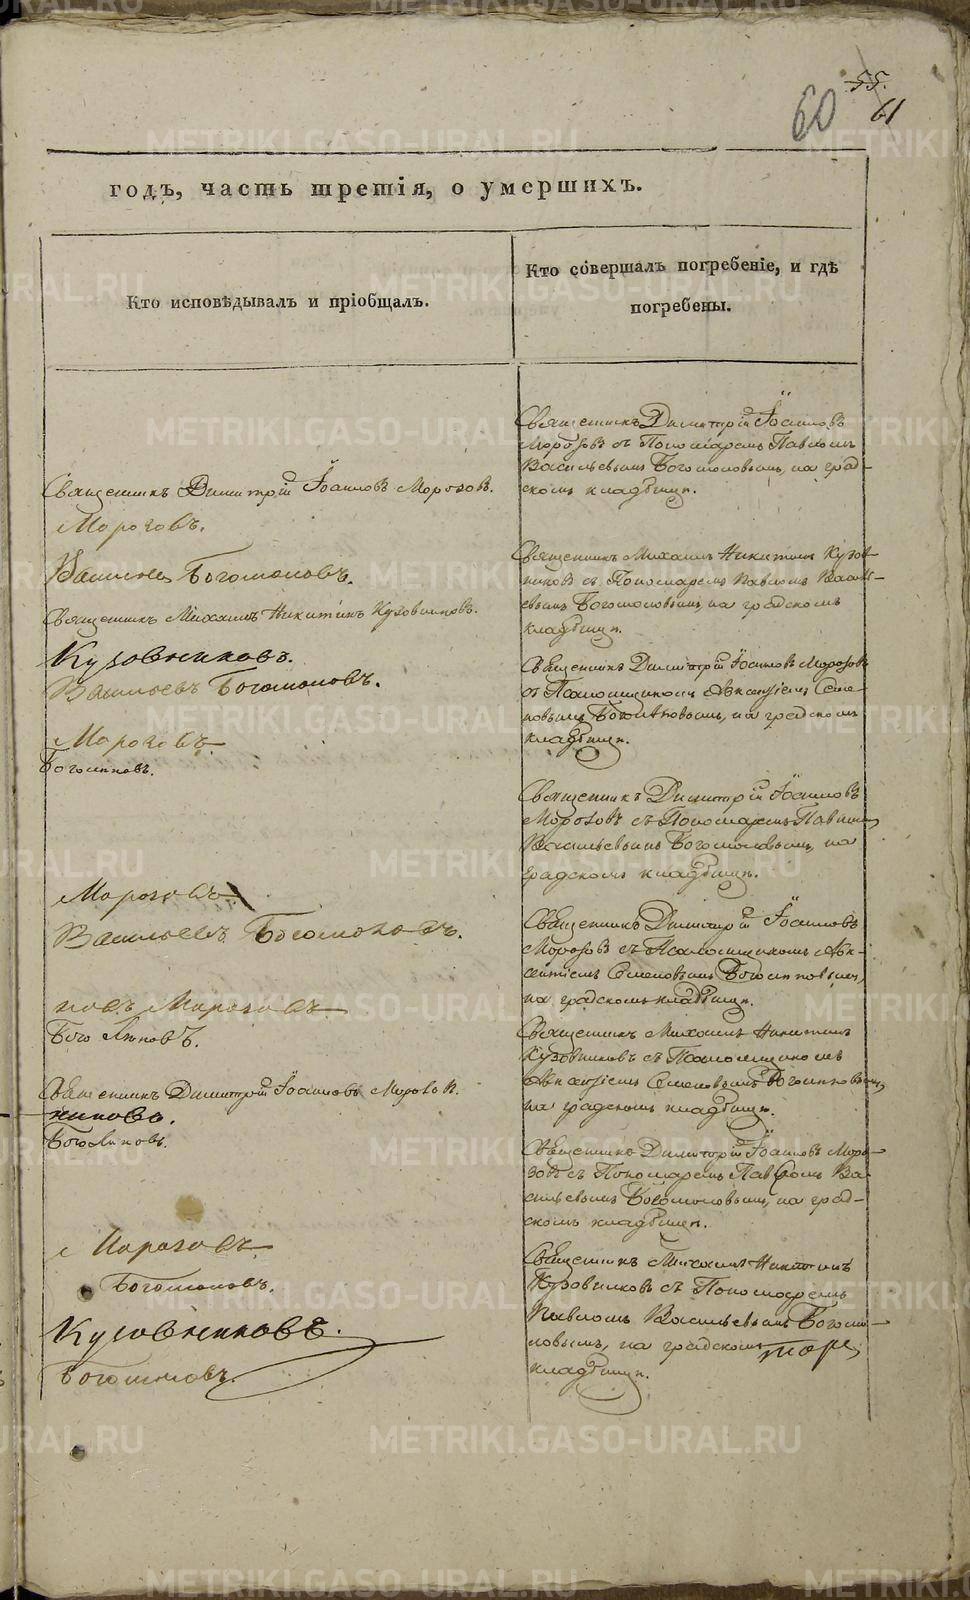 55.
60 61
годъ, часть третія, о умершихъ.
Кто исповѣдывалъ и пріобщалъ.
Кто совершалъ погребеніе, и гдѣ
погребены.
Священникъ Димитрій Іоанновъ Морозовъ.
Морозовъ.
Васильевъ Богомоловъ.
Священникъ Михаилъ Никитинъ Кузовниковъ.
Кузовниковъ.
Васильевъ Богомоловъ.
Морозовъ
Морозовъ
Васильевъ Богомоловъ.
новъ Морозовъ
Священникъ Димитрій Іоанновъ Морозов.
никовъ.
Морозовъ
Богомоловъ.
Кузовниковъ.
Священникъ Димитрій Іоанновъ
Морозовъ съ Пономаремъ Павломъ
Васильевымъ Богомоловымъ, на град-
скомъ кладбищѣ.
Священникъ Михаилъ Никитинъ Кузов-
никовъ съ Пономаремъ Павломъ Василь-
евымъ Богомоловымъ, на градскомъ
кладбищѣ.
Священникъ Димитрій Іоанновъ Морозовъ
съ Семе-
новымъ на градскомъ
кладбищѣ.
Священникъ Димитрій Іоанновъ
Морозовъ съ Пономаремъ Павломъ
Васильевымъ Богомоловымъ, на
градскомъ кладбищѣ.
Священникъ Димитрій Іоанновъ
Морозовъ съ
Семеновымъ
на градскомъ кладбищѣ.
Священникъ Михаилъ Никитинъ
Кузовниковъ съ
Семеновымъ
на градскомъ кладбищѣ.
Священникъ Димитрій Іоанновъ Моро-
зовъ съ Пономаремъ Павломъ Ва-
сильевымъ Богомоловымъ, на град-
скомъ кладбищѣ.
Священникъ Михаилъ Никитинъ
Кузовниковъ съ Пономаремъ
Павломъ Васильевымъ Богомо-
ловымъ, на градскомъ
кладбищѣ.
METRIKI.GASO-URAL.RU